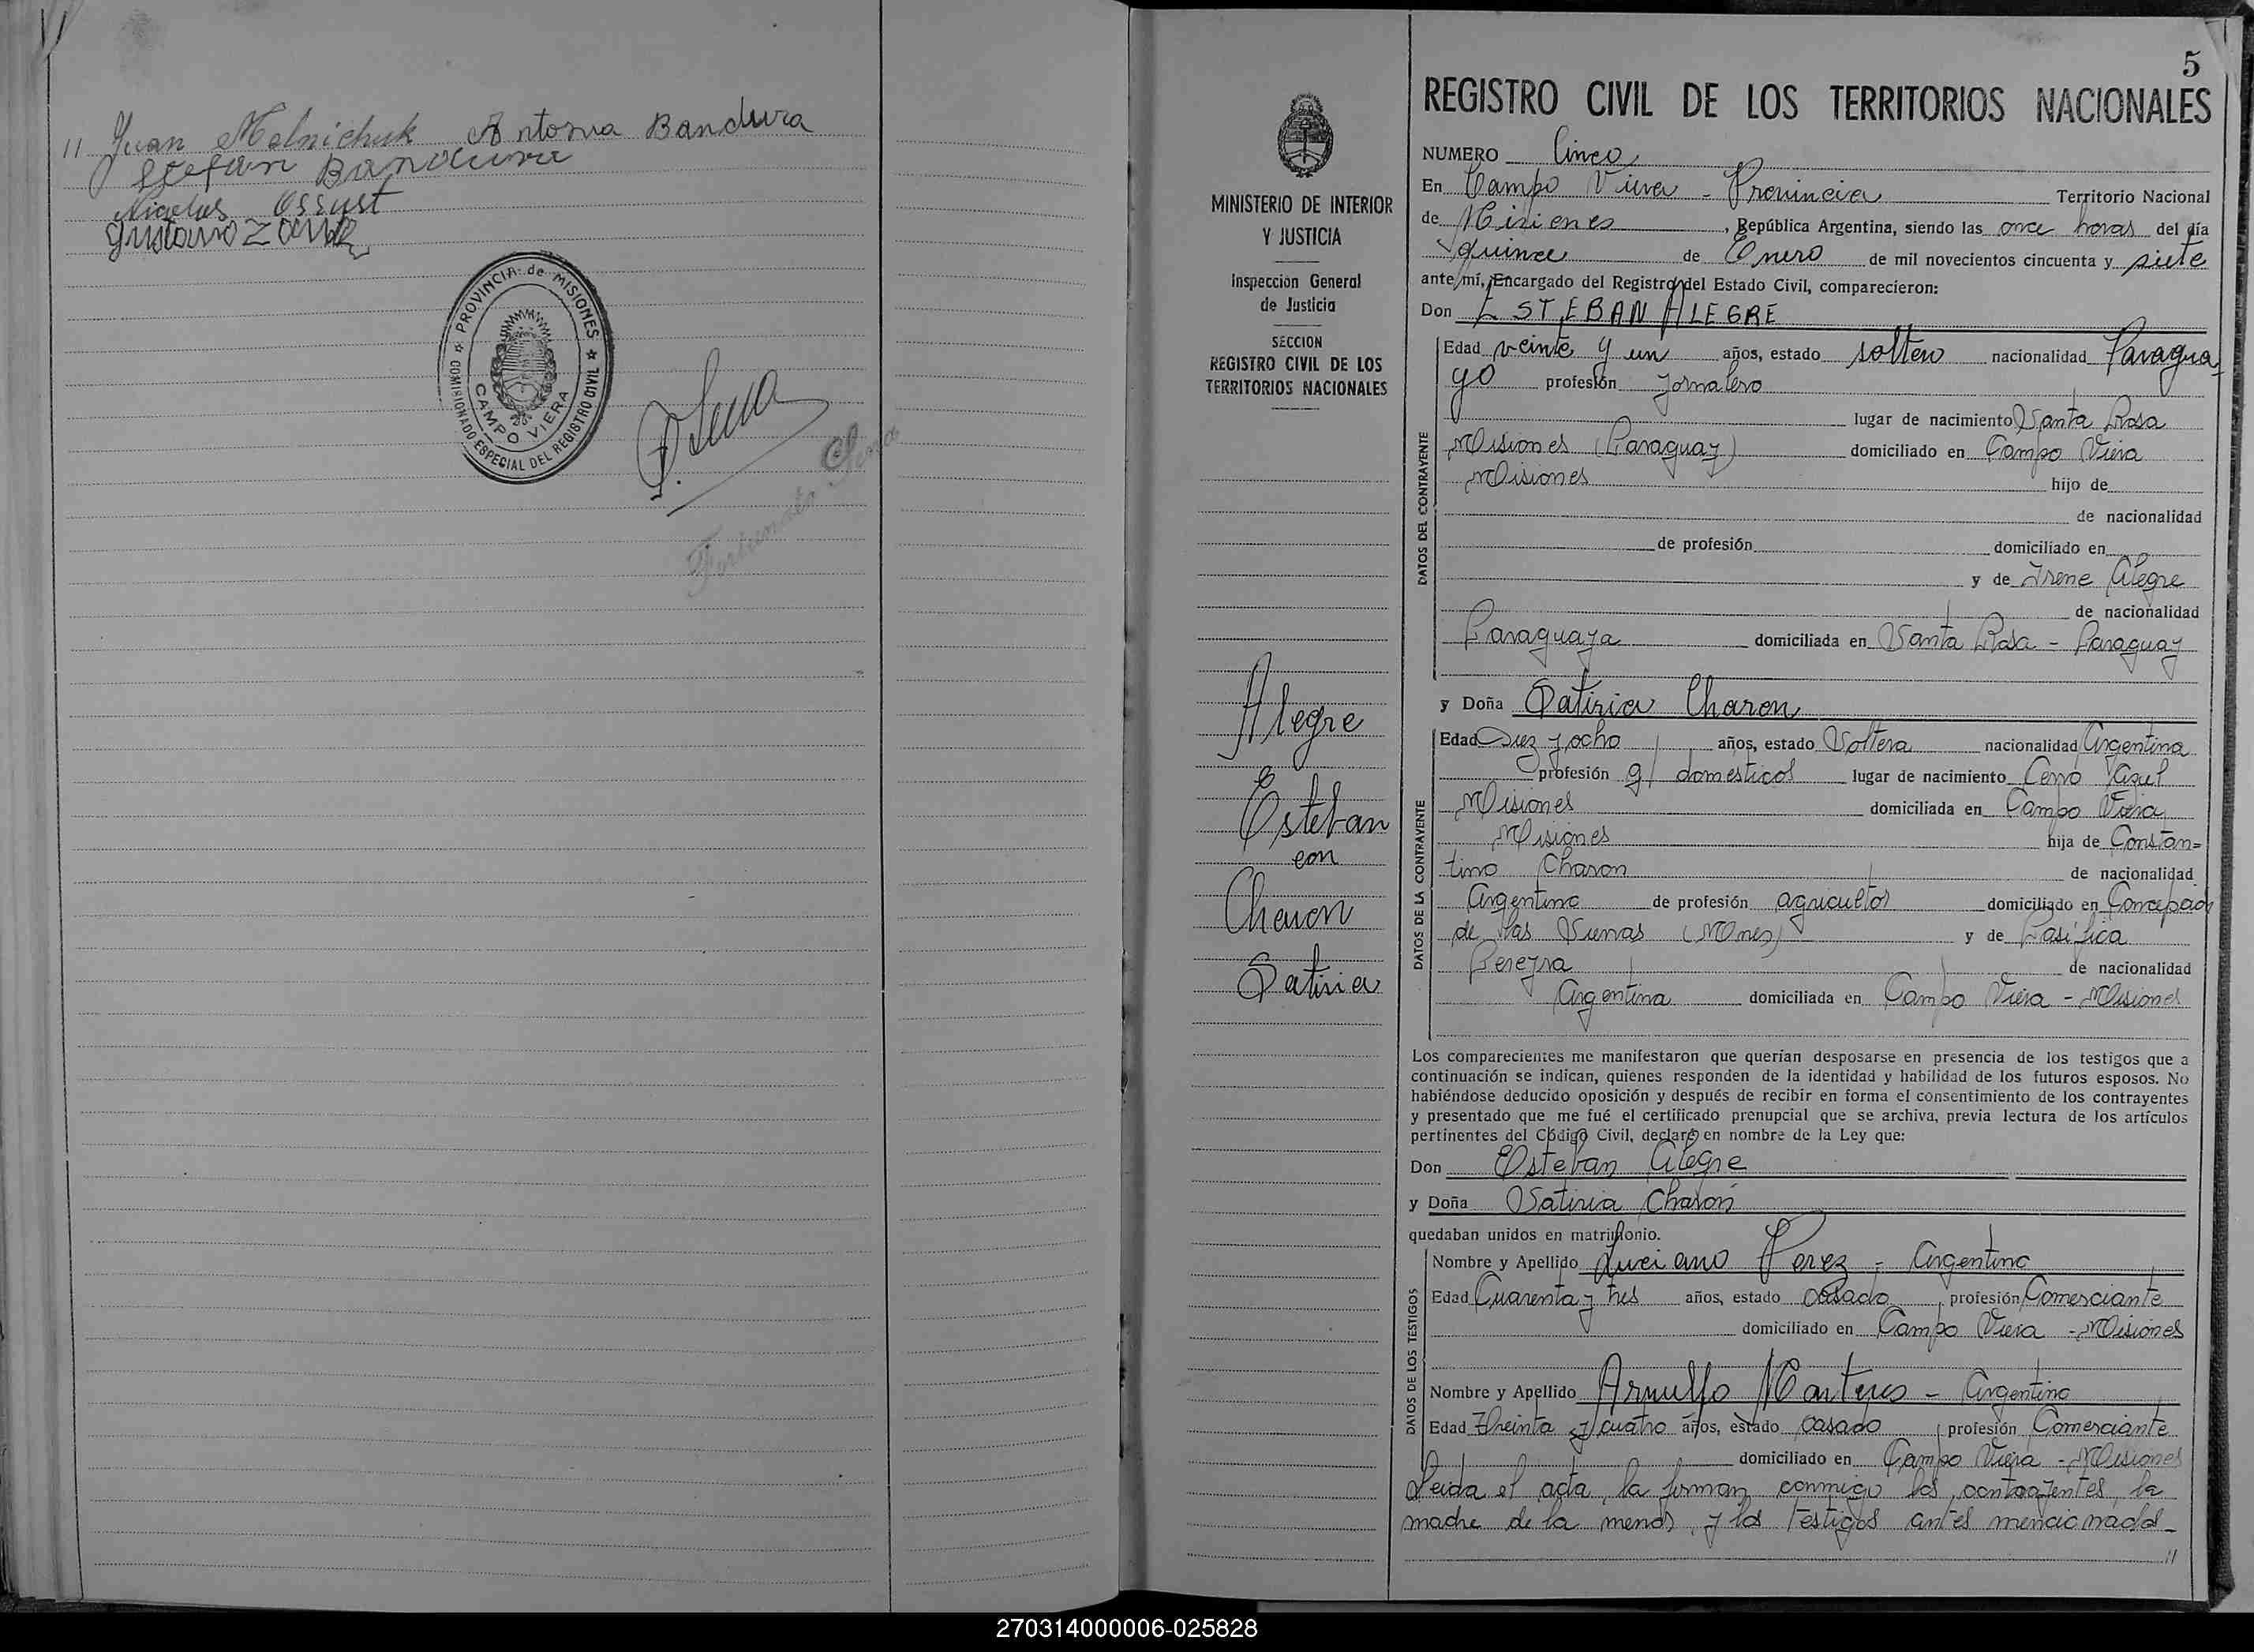 " Juan Melnichuk Antonia Bandura
Stefan Bandura
Nicolas Ossust
Gustavo
PROVINCIA de MISIONES
COMISIONADO ESPECIAL DEL REGISTRO CIVIL
CAMPO VIERA
Sena
Sena
MINISTERIO DE INTERIOR
Y JUSTICIA
Inspección General
de Justicia
SECCION
REGISTRO CIVIL DE LOS
TERRITORIOS NACIONALES
Alegre
Esteban
con
Charon
Satiria
5
REGISTRO CIVIL DE LOS TERRITORIOS NACIONALES
NUMERO Cinco
En Campo Viera - Provincia Territorio Nacional
de Misiones, República Argentina, siendo las once horas del día
quince de Enero de mil novecientos cincuenta y siete
ante mí, Encargado del Registro del Estado Civil, comparecieron:
Don ESTEBAN ALEGRE
Edad veinte y un años, estado soltero nacionalidad Paragua-
yo profesión Jornalero
lugar de nacimiento Santa Rosa
Misiones (Paraguay) domiciliado en Campo Viera
Misiones hijo de
de nacionalidad
de profesión domiciliado en
y de Irene Alegre
de nacionalidad
Paraguaya domiciliada en Santa Rosa - Paraguay
DATOS DEL CONTRAYENTE
y Doña Satiria Charon
Edad Diez y ocho años, estado Soltera nacionalidad Argentina
profesión q/ domesticos lugar de nacimiento Cerro Azul
Misiones domiciliada en Campo Viera
Misiones hija de Constan=
tino Charon de nacionalidad
Argentino de profesión agricultor domiciliado en Concepción
de las Sierras (Mnes) y de Pasifica
Pereyra de nacionalidad
Argentina domiciliada en Campo Viera - Misiones
DATOS DE LA CONTRAYENTE
Los comparecientes me manifestaron que querían desposarse en presencia de los testigos que a
continuación se indican, quienes responden de la identidad y habilidad de los futuros esposos. No
habiéndose deducido oposición y después de recibir en forma el consentimiento de los contrayentes
y presentado que me fué el certificado prenupcial que se archiva, previa lectura de los artículos
pertinentes del Código Civil, declaré en nombre de la Ley que:
Don Esteban Alegre
y Doña Satiria Charon
quedaban unidos en matrimonio.
Nombre y Apellido Luciano Perez - Argentino
Edad Cuarenta y tres años, estado casado profesión Comerciante
domiciliado en Campo Viera - Misiones
Nombre y Apellido Arnulfo - Argentino
Edad Treinta y cuatro años, estado casado profesión Comerciante
domiciliado en Campo Viera - Misiones
DATOS DE LOS TESTIGOS
Leida el acta, la firman conmigo los contrayentes, la
madre de la menor y los testigos antes mencionados -
"
270314000006-025828